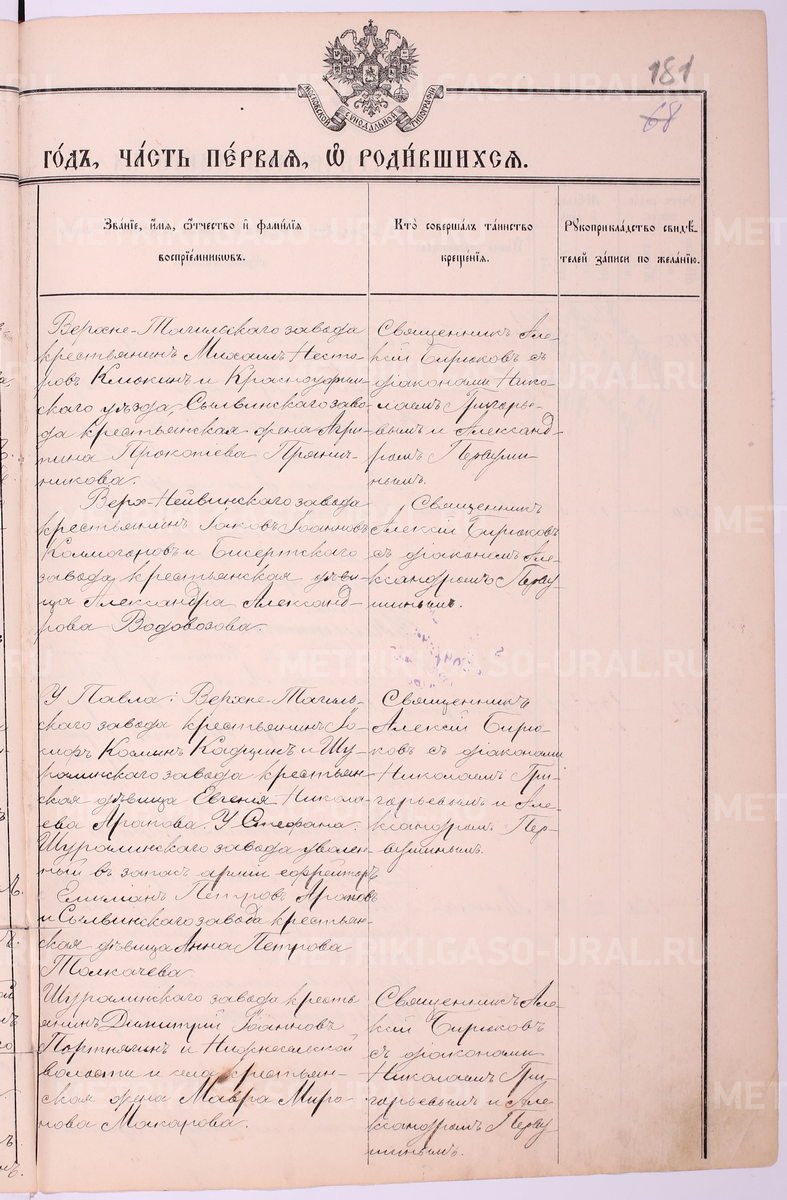 181
68
МОСКОВСКОЙ СѴНОДАЛЬНОЙ ТИПОГРАФІИ
го́дъ, ча́сть пе́рваѧ, ѡ҆ роди́вшихсѧ.
Зва́нїе, и҆́мѧ, ѻ҆́тчество и҆ фами́лїѧ
воспрїе́мникѡвъ.
Кто̀ соверша́лъ та́инство
креще́нїѧ.
Рꙋкоприкла́дство свидѣ́-
телей за́писи по жела́нїю.
Верхне-Тагильскаго завода
крестьянинъ Михаилъ Несте-
ровъ Клюкинъ и Красноуфим-
скаго уѣзда Сылвинскаго заво-
да крестьянская жена Агри-
пина Прокопьева Прянич-
никова.
Священникъ Але-
ксій Бирюковъ съ
діаконами Нико-
лаемъ Григорье-
вымъ и Александ-
ромъ Первуши-
нымъ.
Верх-Нейвинскаго завода
крестьянинъ Іаковъ Іоанновъ
Колмогоровъ и Бисертскаго
завода крестьянская дѣви-
ца Александра Александ-
рова Водовозова.
Священникъ
Алексій Бирюковъ
съ діакономъ Але-
ксандромъ Перву
шинымъ.
У Павла: Верхне-Тагиль-
скаго завода крестьянинъ Іо-
сифъ Косминъ Кафцинъ и Шу-
ралинскаго завода крестьян-
ская дѣвица Евгенія Никола-
ева Арапова. У Стефана:
Шуралинскаго завода уволен-
ный въ запасъ арміи ефрейторъ
Емиліанъ Петровъ Араповъ
и Сылвинскаго завода крестьян-
ская дѣвица Анна Петрова
Толкачева
Священникъ
Алексій Бирю-
ковъ съ діаконами
Николаемъ Гри-
горьевымъ и Але-
ксандромъ Пер-
вушинымъ.
Шуралинскаго завода кресть
янинъ Димитрій Іоанновъ
Портнягинъ и Нижнесельской
волости и села крестьян-
ская жена Мавра Миро-
нова Макарова.
Священникъ Але-
ксій Бирюковъ
съ діаконами
Николаемъ Гри-
горьевымъ и Але-
ксандромъ Перву
шинымъ.
METRIKI.GASO-URAL.RU